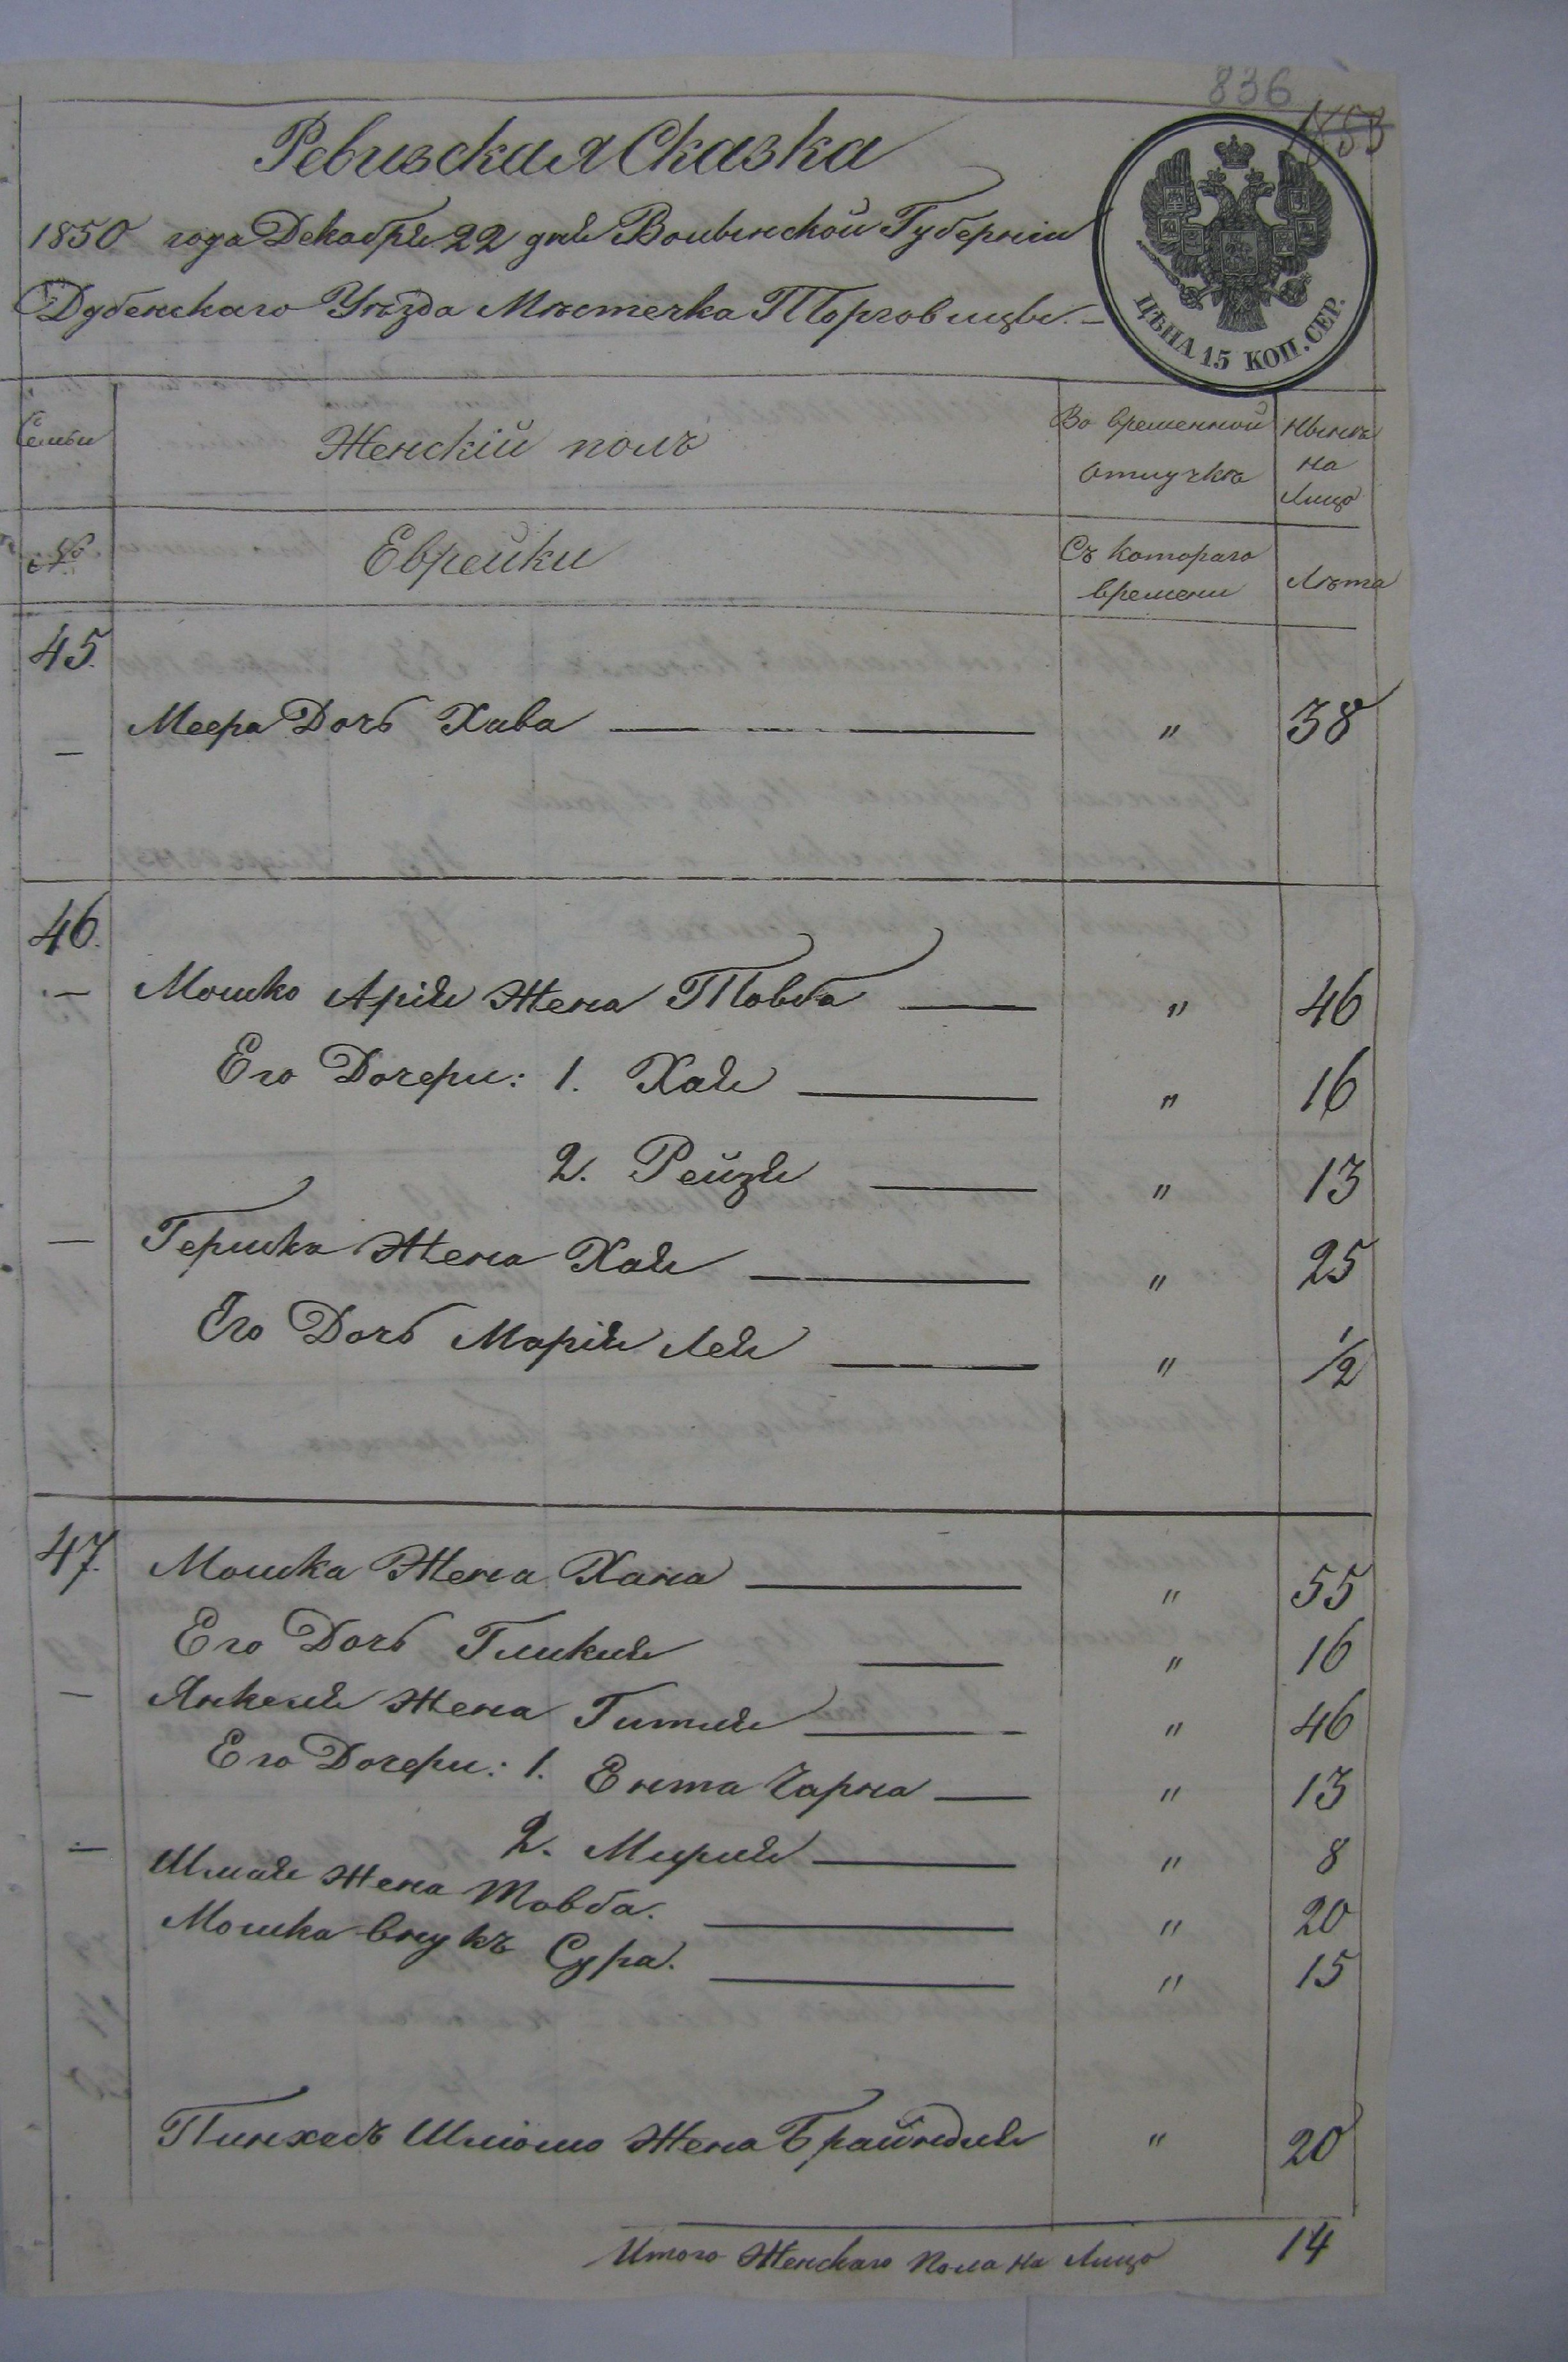 836
1853
Ревизская Сказка
1850 года Декабря 22 дня Волынской Губерніи
Дубенскаго Уѣзда Мѣстечка Торговицы. –
ЦѢНА 15 КОП. СЕР.
Семьи Женскій полъ Во временной отлучкѣ Нынѣ на Лицо
№ Еврейки Съ котораго времени Лѣта
45.
— Меера Дочь Хава — " 38
46.
— Мошко Арія Жена Товба — " 46
Его Дочери: 1. Хая — " 16
2. Рейзя — " 13
— Гершка Жена Хая — " 25
Его Дочь Марія Лея — " 1/2
47. Мошка Жена Хана — " 55
Его Дочь Гликля — " 16
— Янкеля Жена Гитля — " 46
Его Дочери: 1. Ента Чарна — " 13
2. Мирля — " 8
— Шмая Жена Товба. — " 20
Мошка внукъ Сура. — " 15
Пинхасъ Шліомо Жена Брайндля " 20
Итого Женскаго пола на Лицо 14